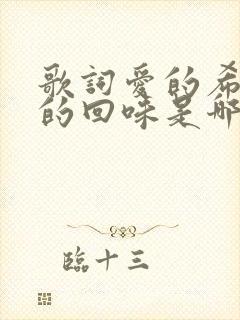 歌詞愛的希
的回味是那
臨十三